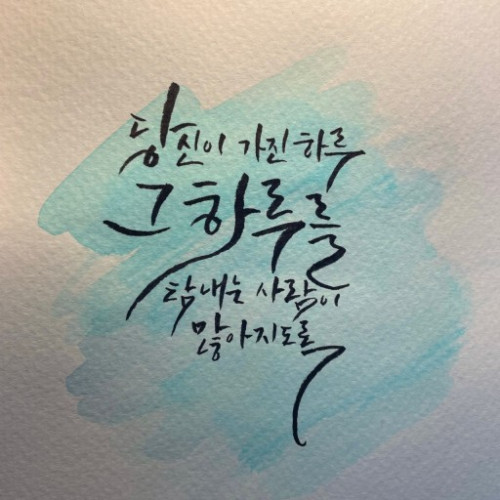 당신이 가진 하루
그 하루를
탐내는 사람이
많아지도록